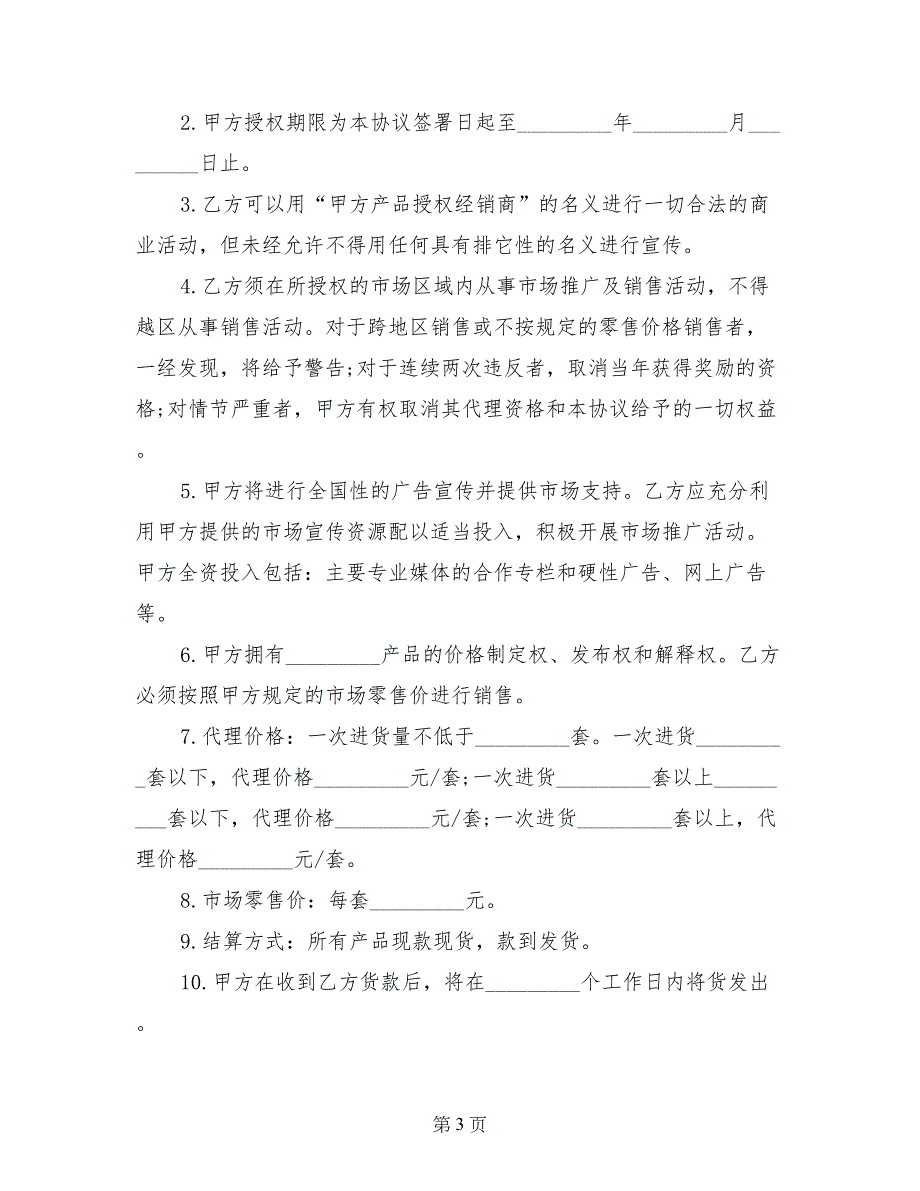 2.甲方授权期限为本协议签署日起至_________年_________月___
______日止。
3.乙方可以用“甲方产品授权经销商”的名义进行一切合法的商
业活动，但未经允许不得用任何具有排它性的名义进行宣传。
4.乙方须在所授权的市场区域内从事市场推广及销售活动，不得
越区从事销售活动。对于跨地区销售或不按规定的零售价格销售者，
一经发现，将给予警告;对于连续两次违反者，取消当年获得奖励的资
格;对情节严重者，甲方有权取消其代理资格和本协议给予的一切权益
。
5.甲方将进行全国性的广告宣传并提供市场支持。乙方应充分利
用甲方提供的市场宣传资源配以适当投入，积极开展市场推广活动。
甲方全资投入包括：主要专业媒体的合作专栏和硬性广告、网上广告
等。
6.甲方拥有_________产品的价格制定权、发布权和解释权。乙方
必须按照甲方规定的市场零售价进行销售。
7.代理价格：一次进货量不低于_________套。一次进货________
_套以下，代理价格_________元/套;一次进货_________套以上______
___套以下，代理价格_________元/套;一次进货_________套以上，代
理价格_________元/套。
8.市场零售价：每套_________元。
9.结算方式：所有产品现款现货，款到发货。
10.甲方在收到乙方货款后，将在_________个工作日内将货发出
。
第 3 页